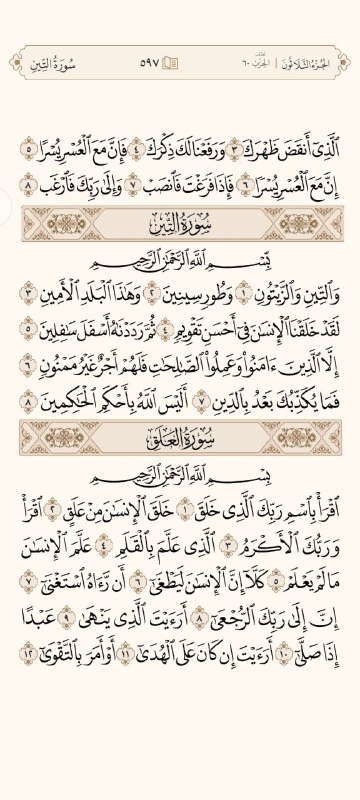 الجُزءُ الثَّلَاثُونَ | الحِزب ٦٠
٥٩٧
سُورَةُ التِّينِ
ٱلَّذِىٓ أَنقَضَ ظَهْرَكَ ٣ وَرَفَعْنَا لَكَ ذِكْرَكَ ٤ فَإِنَّ مَعَ ٱلْعُسْرِ يُسْرًا ٥
إِنَّ مَعَ ٱلْعُسْرِ يُسْرًا ٦ فَإِذَا فَرَغْتَ فَٱنصَبْ ٧ وَإِلَىٰ رَبِّكَ فَٱرْغَب ٨
سُورَةُ التِّينِ
بِسْمِ ٱللَّهِ ٱلرَّحْمَٰنِ ٱلرَّحِيمِ
وَٱلتِّينِ وَٱلزَّيْتُونِ ١ وَطُورِ سِينِينَ ٢ وَهَٰذَا ٱلْبَلَدِ ٱلْأَمِينِ ٣
لَقَدْ خَلَقْنَا ٱلْإِنسَٰنَ فِىٓ أَحْسَنِ تَقْوِيمٍ ٤ ثُمَّ رَدَدْنَٰهُ أَسْفَلَ سَٰفِلِينَ ٥
إِلَّا ٱلَّذِينَ ءَامَنُوا۟ وَعَمِلُوا۟ ٱلصَّٰلِحَٰتِ فَلَهُمْ أَجْرٌ غَيْرُ مَمْنُونٍ ٦
فَمَا يُكَذِّبُكَ بَعْدُ بِٱلدِّينِ ٧ أَلَيْسَ ٱللَّهُ بِأَحْكَمِ ٱلْحَٰكِمِينَ ٨
سُورَةُ العَلَقِ
بِسْمِ ٱللَّهِ ٱلرَّحْمَٰنِ ٱلرَّحِيمِ
ٱقْرَأْ بِٱسْمِ رَبِّكَ ٱلَّذِى خَلَقَ ١ خَلَقَ ٱلْإِنسَٰنَ مِنْ عَلَقٍ ٢ ٱقْرَأْ
وَرَبُّكَ ٱلْأَكْرَمُ ٣ ٱلَّذِى عَلَّمَ بِٱلْقَلَمِ ٤ عَلَّمَ ٱلْإِنسَٰنَ
مَا لَمْ يَعْلَمْ ٥ كَلَّآ إِنَّ ٱلْإِنسَٰنَ لَيَطْغَىٰٓ ٦ أَن رَّءَاهُ ٱسْتَغْنَىٰٓ ٧
إِنَّ إِلَىٰ رَبِّكَ ٱلرُّجْعَىٰٓ ٨ أَرَءَيْتَ ٱلَّذِى يَنْهَىٰ ٩ عَبْدًا
إِذَا صَلَّىٰٓ ١٠ أَرَءَيْتَ إِن كَانَ عَلَى ٱلْهُدَىٰٓ ١١ أَوْ أَمَرَ بِٱلتَّقْوَىٰٓ ١٢